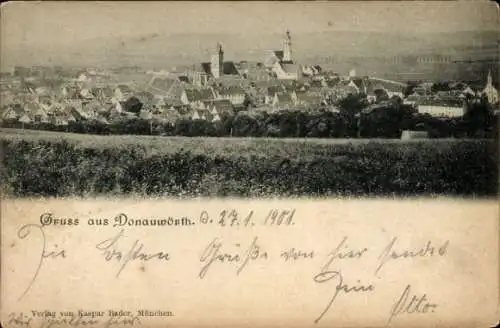 Gruss aus Donauwörth. d. 27.1.1901
Die besten Grüße von hier sendet
Dein Otto.
Verlag von Kaspar Bader, München.
Wir